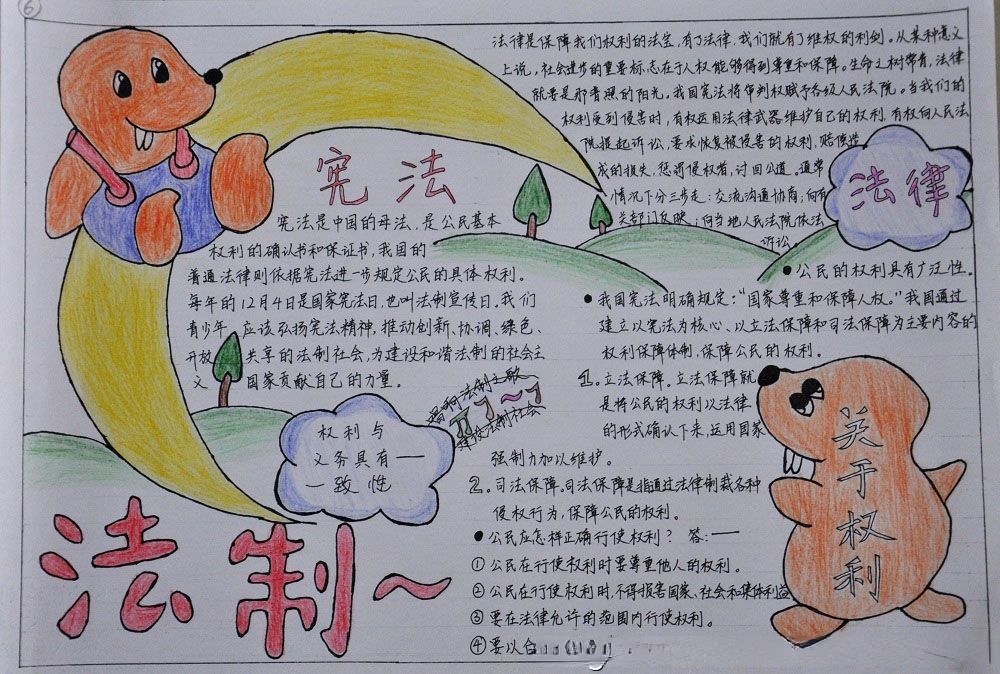 ⑥
法律是保障我们权利的法宝,有了法律,我们就有了维权的利剑。从某种意义
上说,社会进步的重要标志在于人权能够得到尊重和保障。生命之树常青,法律
就要是那普照的阳光。我国宪法将审判权赋予各级人民法院。当我们的
权利受到侵害时,有权运用法律武器维护自己的权利,有权向人民法
院提起诉讼,要求恢复被侵害的权利,赔偿造
成的损失,惩罚侵权者,讨回公道。通常
情况下分三步走:交流沟通协商;向有
关部门反映;向当地人民法院依法
诉讼
法律
宪法
宪法是中国的母法,是公民基本
权利的确认书和保证书,我国的
普通法律则依据宪法进一步规定公民的具体权利。
每年的12月4日是国家宪法日,也叫法制宣传日。我们
青少年,应该弘扬宪法精神,推动创新、协调、绿色、
开放、共享的法制社会,为建设和谐法制的社会主
义国家贡献自己的力量。
●公民的权利具有广泛性。
●我国宪法明确规定:“国家尊重和保障人权。”我国通过
建立以宪法为核心、以立法保障和司法保障为主要内容的
权利保障体制,保障公民的权利。
1。立法保障。立法保障就
是将公民的权利以法律
的形式确认下来,运用国家
强制力加以维护。
2。司法保障。司法保障是指通过法律制裁各种
侵权行为,保障公民的权利。
●公民应怎样正确行使权利? 答:——
①公民在行使权利时要尊重他人的权利。
②公民在行使权利时,不得损害国家、社会和集体利益
③要在法律允许的范围内行使权利。
④要以合
唱响法制之歌
建设法制社会
权利与
义务具有——
一致性
关于权利
法制~